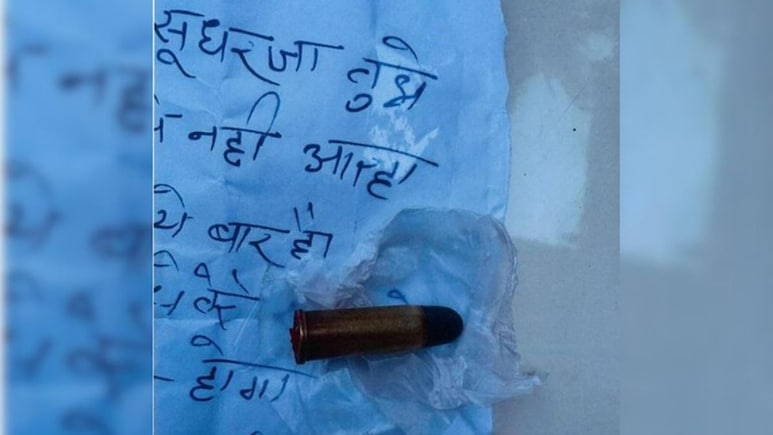 सुधरजा तुझे
नही आरहा
ये बार है
होगा